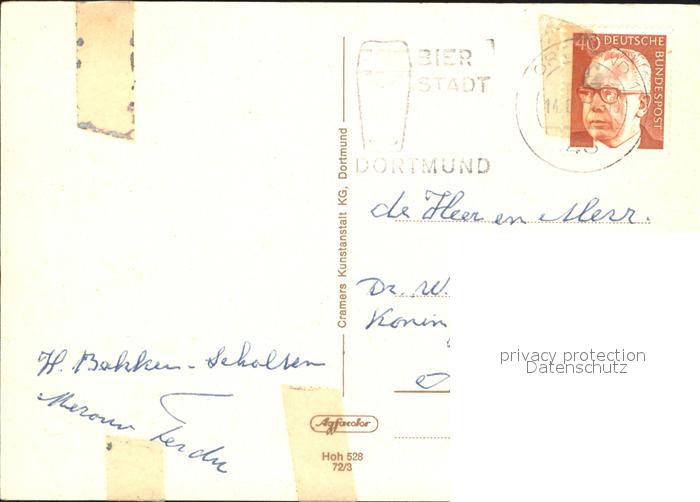 BIER
STADT
DORTMUND
40 DEUTSCHE
BUNDESPOST
DORTMUND
14.
46
de Heer en Mevr.
Dr. W.
Konin
H. Bakker-Scholten
Cramers Kunstanstalt KG, Dortmund
privacy protection
Datenschutz
Agfacolor
Hoh 528
72/3